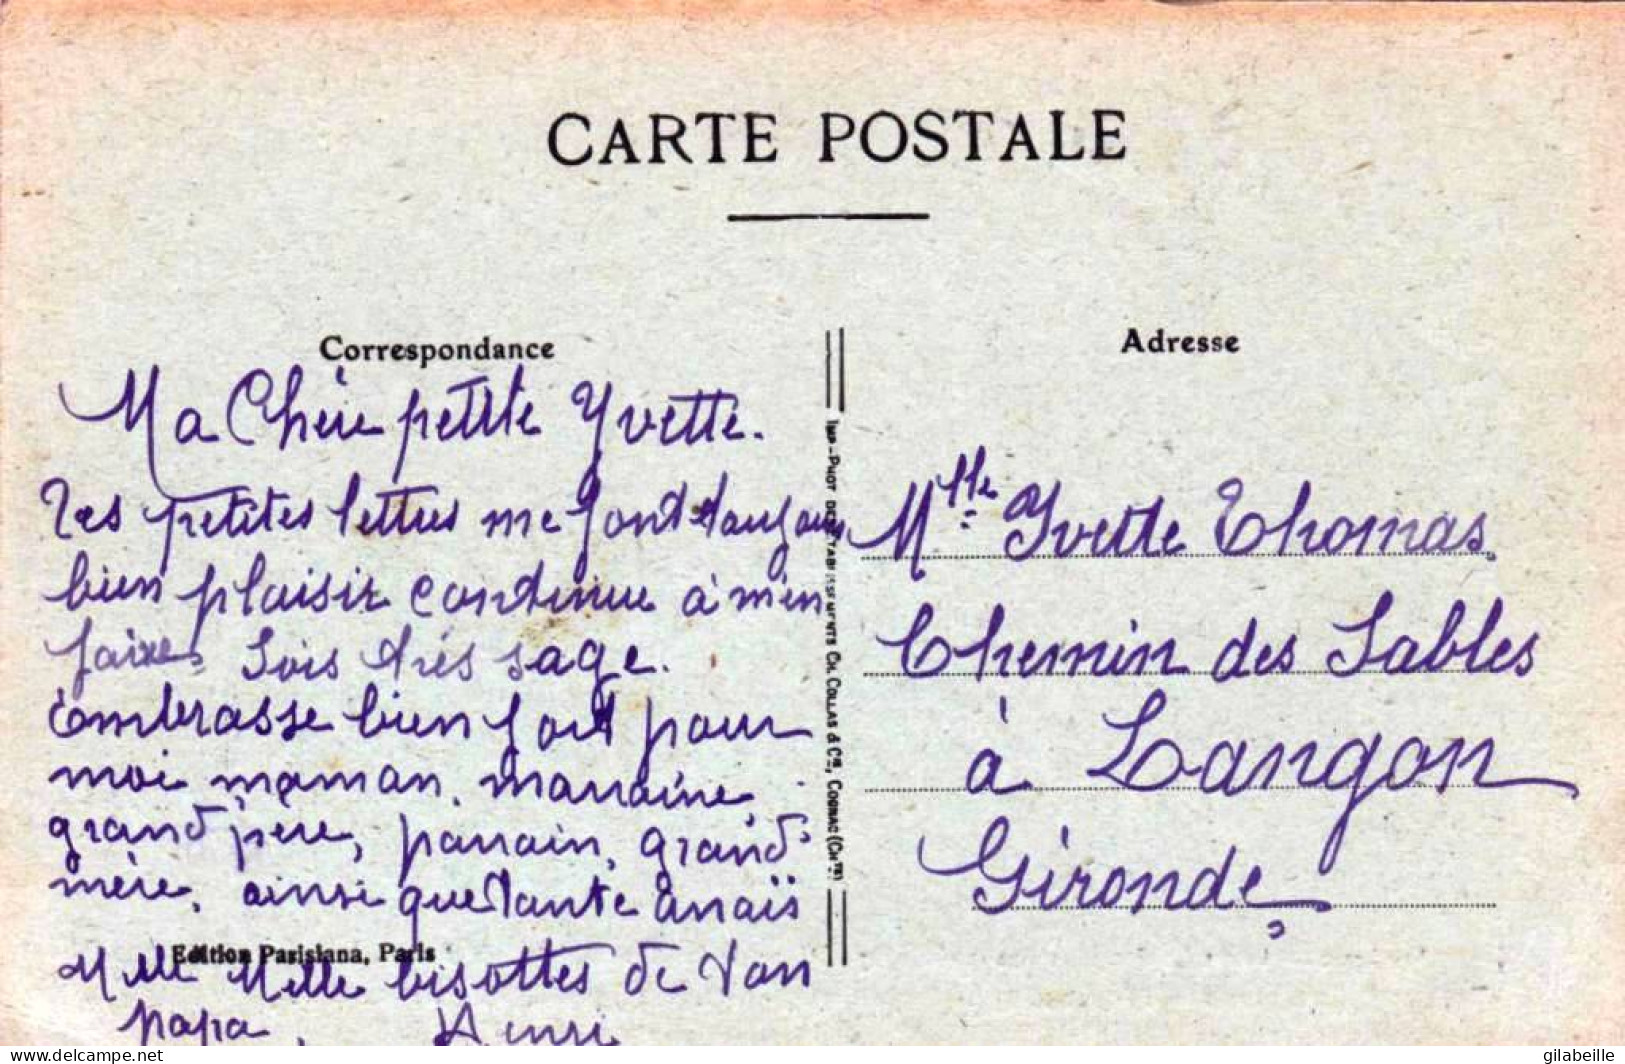 CARTE POSTALE
Correspondance
Ma Chère petite Yvette.
Tes petites lettres me font toujours
bien plaisir continue à m'en
faire. Sois très sage.
Embrasse bien fort pour
moi maman, marraine,
grand père, parrain, grand'
mère, ainsi que tante Anaïs
Mille Mille bisottes de ton
papa, Henri
Edition Parisiana, Paris
IMP-PHOT DES ETABLISSEMENTS CH. COLLAS & Cie, COGNAC (Chte)
Adresse
Mlle Yvette Thomas
Chemin des Sables
à Langon
Gironde
delcampe.net
gilabeille